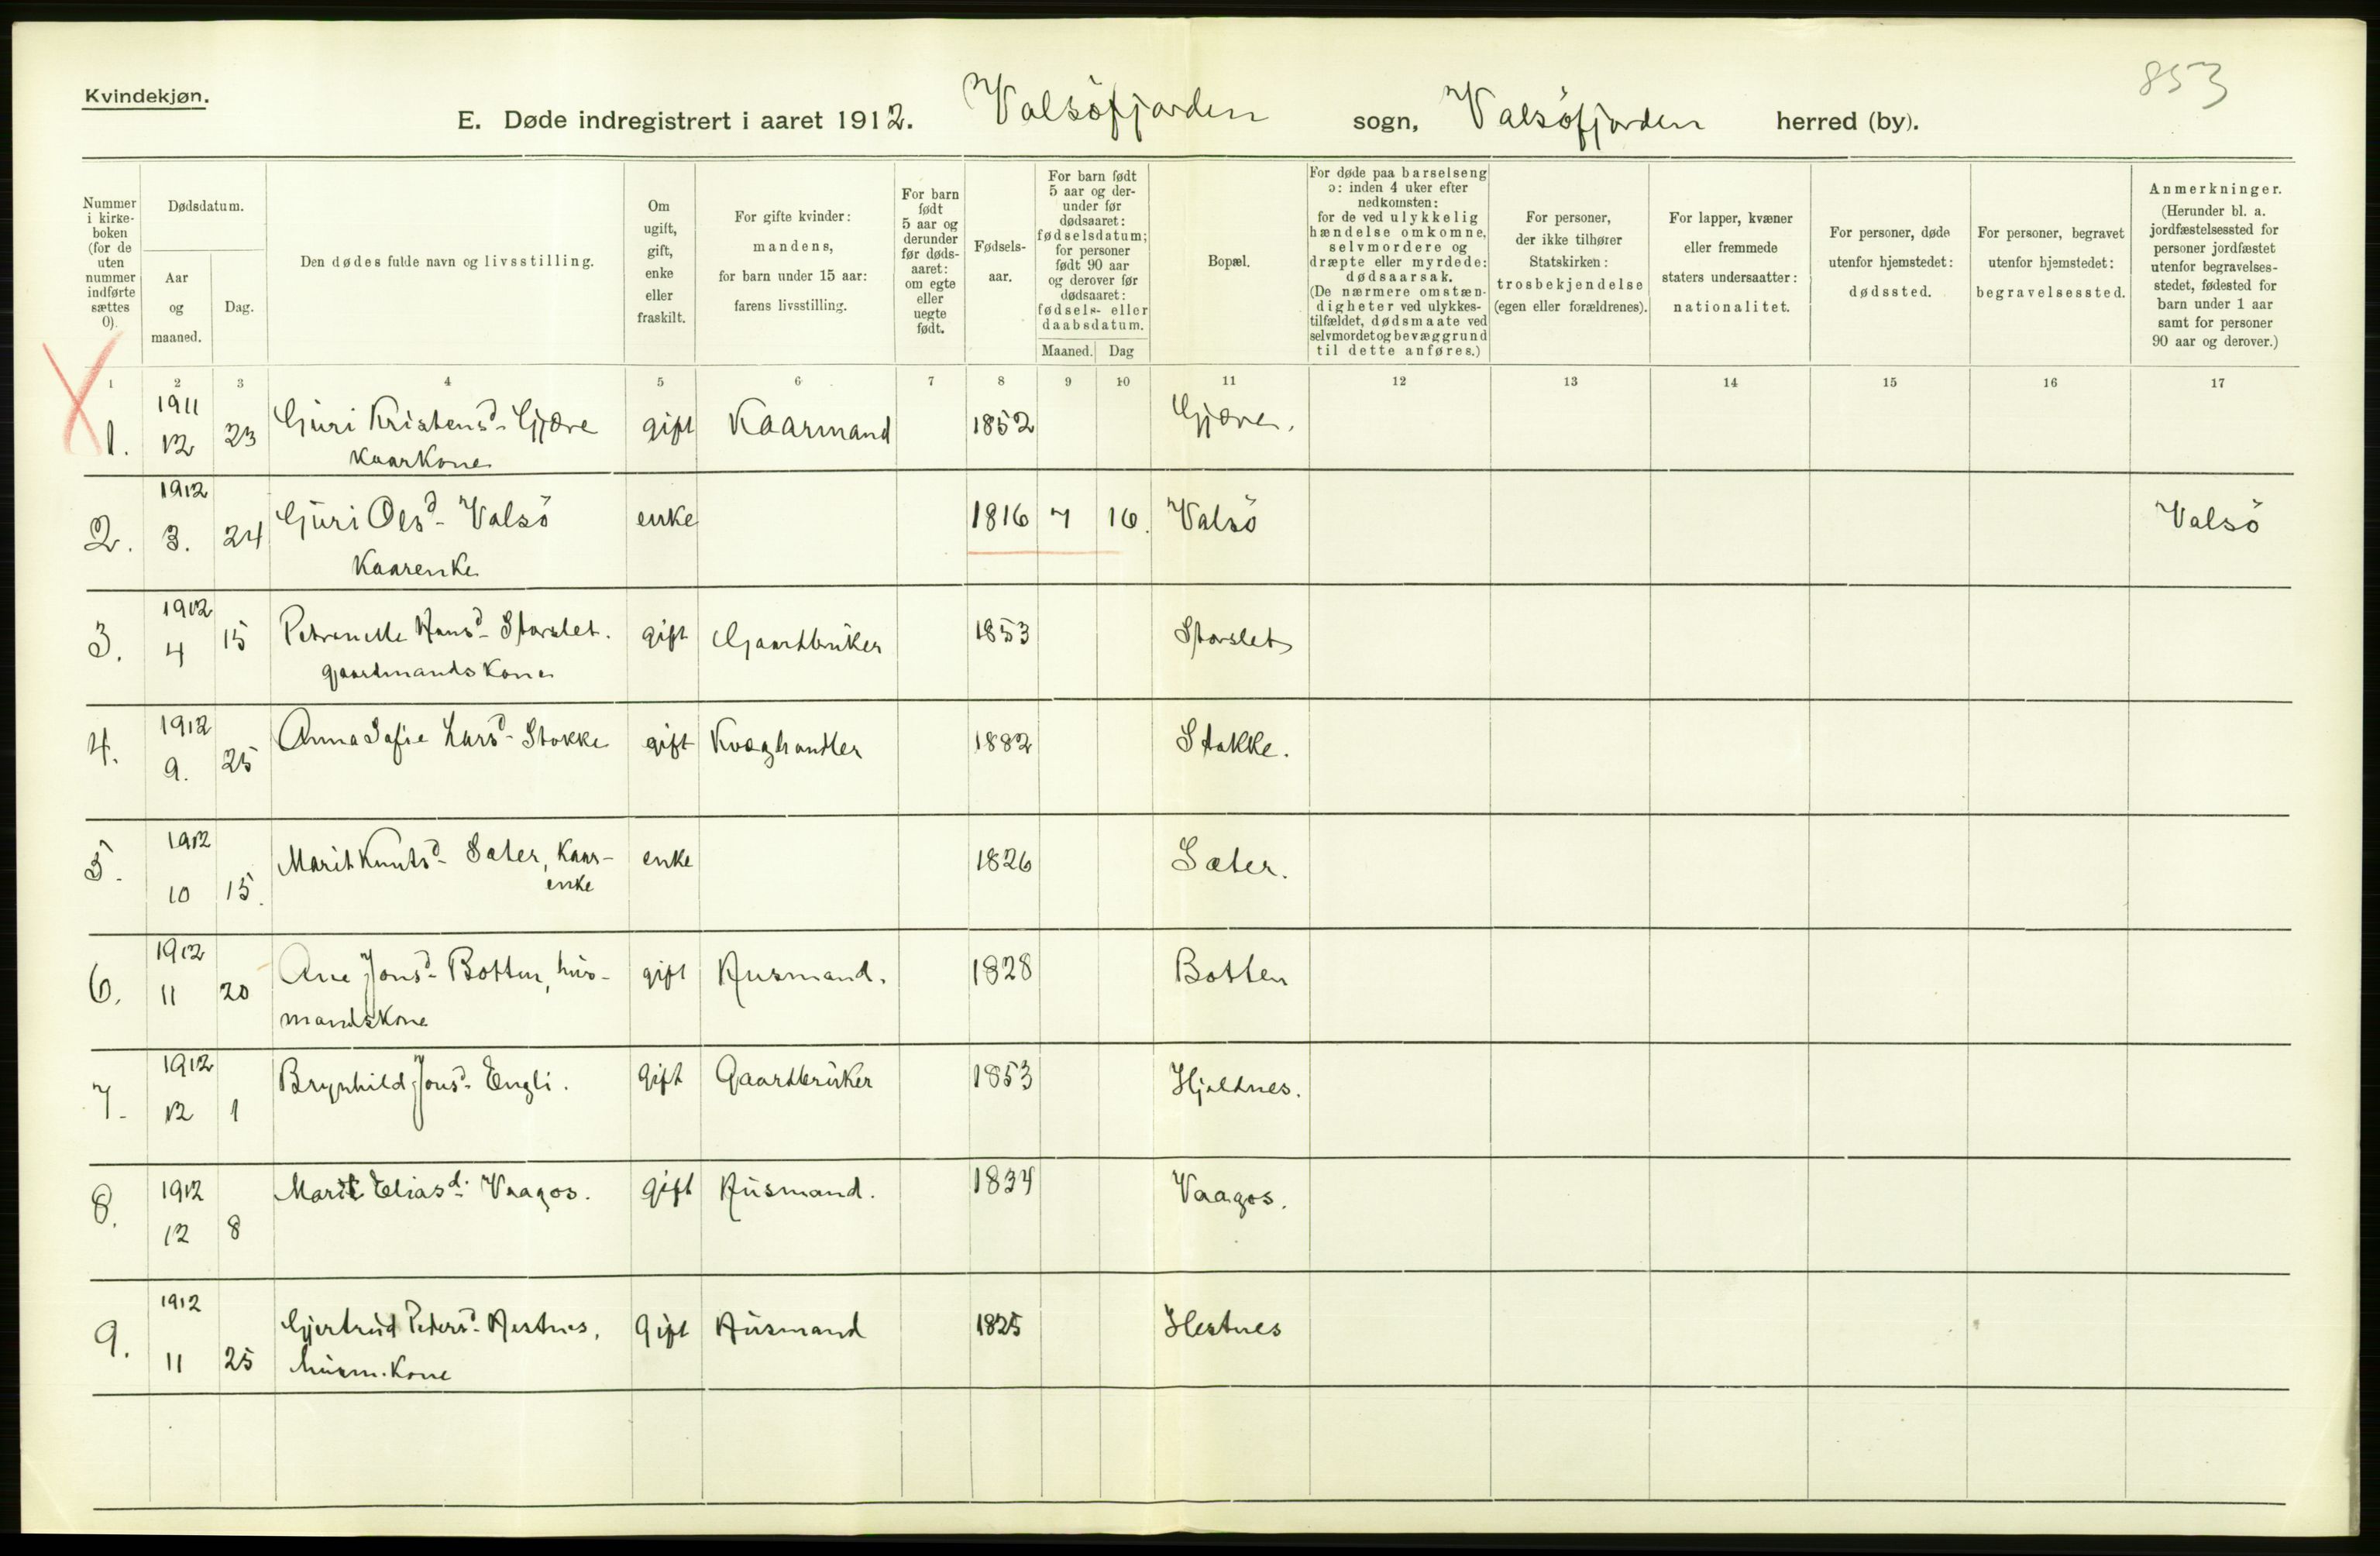 Kvindekjøn.
853
E. Døde indregistrert i aaret 1912. Valsöfjorden sogn, Valsöfjorden herred (by).
Nummer i kirke-boken (for de uten nummer indførte sættes 0).
Dødsdatum.
Aar og maaned.
Dag.
Den dødes fulde navn og livsstilling.
Om ugift, gift, enke eller fraskilt.
For gifte kvinder: mandens, for barn under 15 aar: farens livsstilling.
For barn født 5 aar og derunder før døds-aaret: om egte eller uegte født.
Fødsels-aar.
For barn født 5 aar og der-under før dødsaaret: fødselsdatum; for personer født 90 aar og derover før dødsaaret: fødsels- eller daabsdatum.
Maaned. Dag
Bopæl.
For døde paa barselseng ɔ: inden 4 uker efter nedkomsten: for de ved ulykkelig hændelse omkomne, selvmordere og dræpte eller myrdede: dødsaarsak. (De nærmere omstæn-digheter ved ulykkes-tilfældet, dødsmaate ved selvmordet og bevæggrund til dette anføres.)
For personer, der ikke tilhører Statskirken: trosbekjendelse (egen eller forældrenes).
For lapper, kvæner eller fremmede staters undersaatter: nationalitet.
For personer, døde utenfor hjemstedet: dødssted.
For personer, begravet utenfor hjemstedet: begravelsessted.
Anmerkninger. (Herunder bl. a. jordfæstelsessted for personer jordfæstet utenfor begravelses-stedet, fødested for barn under 1 aar samt for personer 90 aar og derover.)
1 2 3 4 5 6 7 8 9 10 11 12 13 14 15 16 17
1. 1911 12 23 Guri Kristensd- Gjøre Kaarkone gift Kaarmand 1852 Gjøre.
2. 1912 3. 24 Guri Olsd- Valsö Kaarenke enke 1816 7 16. Valsö Valsö
3. 1912 4 15 Petronelle Hansd- Storslet. gaardmandskone gift Gaardbruker 1853 Storslet
4. 1912 9. 25 Anna Sofie Larsd- Stokke gift Kvæghandler 1882 Stokke.
5. 1912 10 15. Marit Knutsd- Sæter, Kaar-enke enke 1826 Sæter.
6. 1912 11 20 Ane Jonsd- Botten, hus-mandskone gift Husmand. 1828 Botten
7. 1912 12 1 Brynhild Jonsd- Engli. gift Gaardbruker 1853 Hjeldnes.
8. 1912 12 8 Marit Eliasd- Vaagos. gift Husmand. 1834 Vaagos.
9. 1912 11 25 Gjertrud Pedersd- Hestnes, husm.kone Gift Husmand 1825 Hestnes